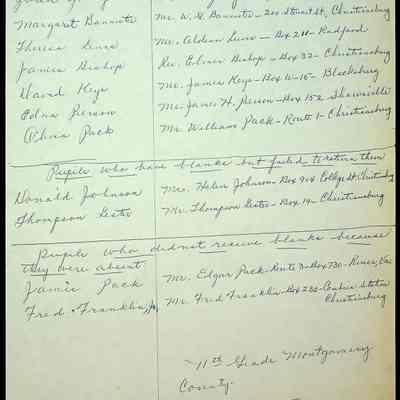 Margaret Bannister Mr. W. H. Bannister - 200 Stuart St, Christiansburg
Theresa Mr. Alden - Box 211 - Radford
James Bishop Rev. Elmer Bishop - Box 32 - Christiansburg
David Keys Mr. James Keys - Box W-15 - Blacksburg
Edna Pierson Mr. James H. Pierson - Box 152 Shawsville
Pack Mr. William Pack - Route 1 - Christiansburg
Pupils who have blanks but failed to return them
Donald Johnson Mrs. Helen Johnson - Box 904 College St Christiansburg
Thompson Lester Mr. Thompson Lester - Box 14 - Christiansburg
Pupils who did not receive blanks because
they were absent
Jamie Pack Mr. Edgar Pack - Route 3 - Box 730 - Riner, Va.
Fred Franklin, Jr. Mr. Fred Franklin - Box 280 - Cambria Station
Christiansburg
11th Grade Montgomery
County.